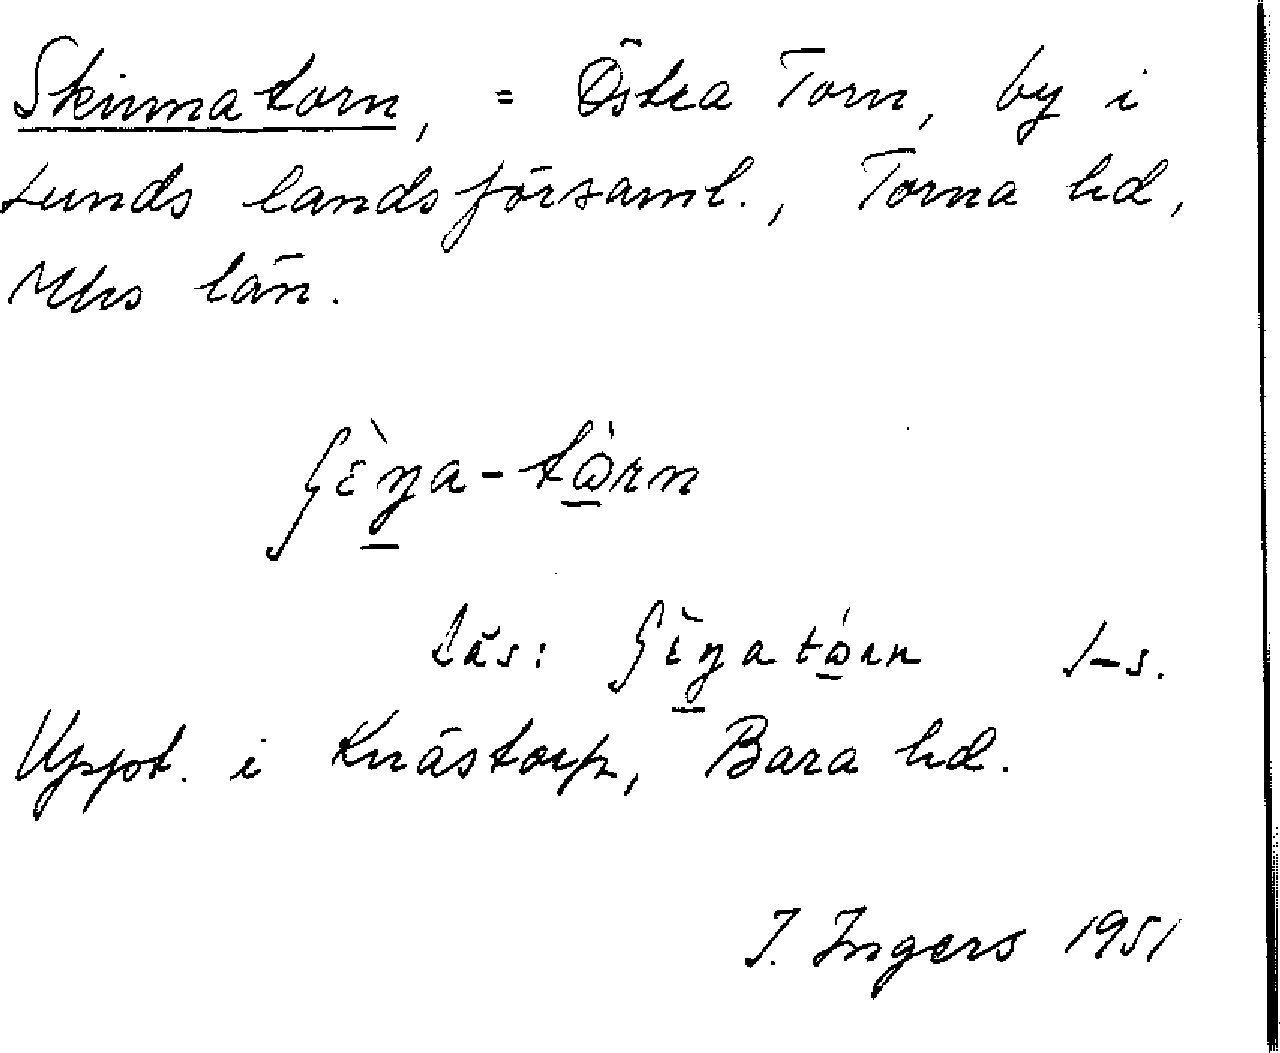 Skinnatorn, = Östra Torn, by i
Lunds landsförsaml., Torna hd,
Mhs län.
ʃɛ̀ŋa-tòrn
Läs: ʃɛ̀ŋatórn I-s.
Uppt. i Knästorp, Bara hd.
I. Ingers 1951